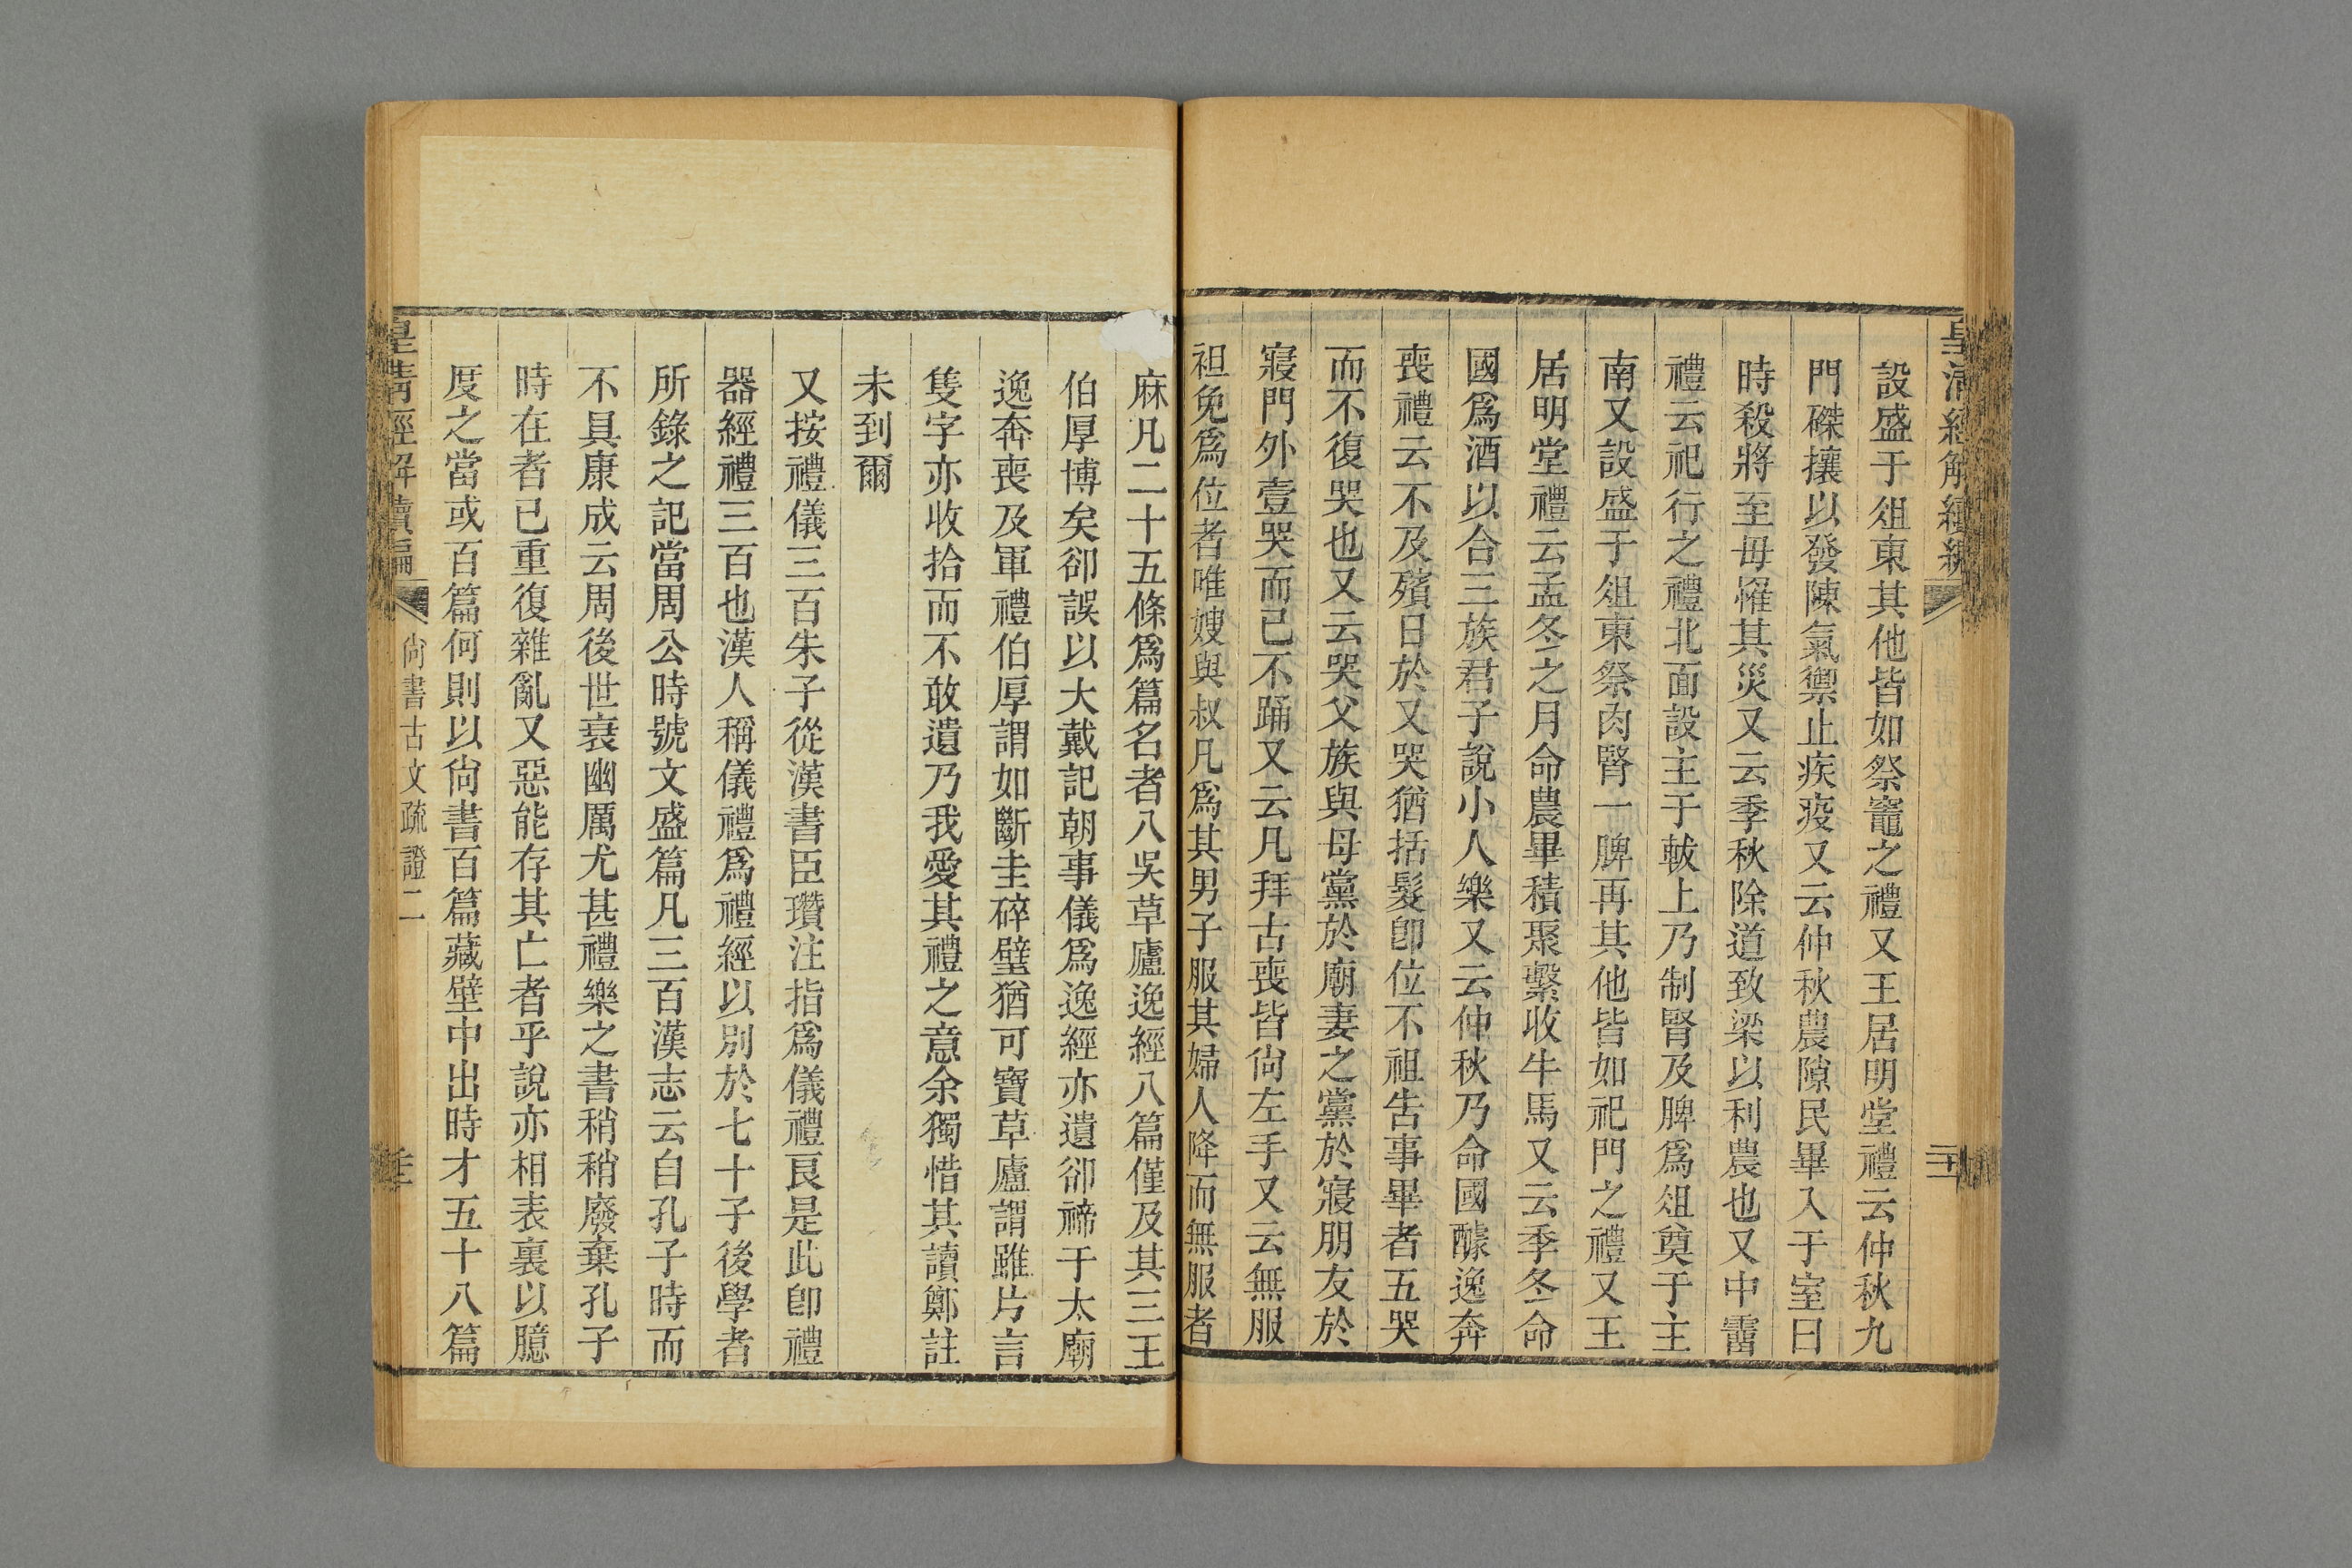 皇清經解續編
設盛于俎東其他皆如祭竈之禮又王居明堂禮云仲秋九
門磔攘以發陳氣禦止疾疫又云仲秋農隙民畢入于室曰
時殺將至毋罹其災又云季秋除道致梁以利農也又中霤
禮云祀行之禮北面設主于軷上乃制腎及脾爲俎奠于主
南又設盛于俎東祭肉腎一脾再其他皆如祀門之禮又王
居明堂禮云孟冬之月命農畢積聚繫收牛馬又云季冬命
國爲酒以合三族君子說小人樂又云仲秋乃命國醵逸奔
喪禮云不及殯日於又哭猶括髮卽位不袒告事畢者五哭
而不復哭也又云哭父族與母黨於廟妻之黨於寢朋友於
寢門外壹哭而已不踊又云凡拜吉喪皆尙左手又云無服
袒免爲位者唯嫂與叔凡爲其男子服其婦人降而無服者
麻凡二十五條爲篇名者八吳草廬逸經八篇僅及其三王
伯厚博矣卻誤以大戴記朝事儀爲逸經亦遺卻禘于太廟
逸奔喪及軍禮伯厚謂如斷圭碎璧猶可寶草廬謂雖片言
隻字亦收拾而不敢遺乃我愛其禮之意余獨惜其讀鄭註
未到爾
又按禮儀三百朱子從漢書臣瓚注指爲儀禮良是此卽禮
器經禮三百也漢人稱儀禮爲禮經以別於七十子後學者
所錄之記當周公時號文盛篇凡三百漢志云自孔子時而
不具康成云周後世衰幽厲尤甚禮樂之書稍稍廢棄孔子
時在者已重復雜亂又惡能存其亡者乎說亦相表裏以臆
度之當或百篇何則以尙書百篇藏壁中出時才五十八篇
皇清經解續編
尙書古文疏證二